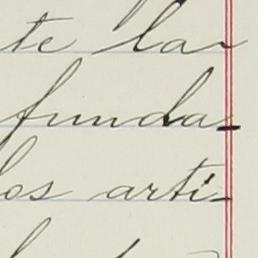 te la
funda-
los arti-